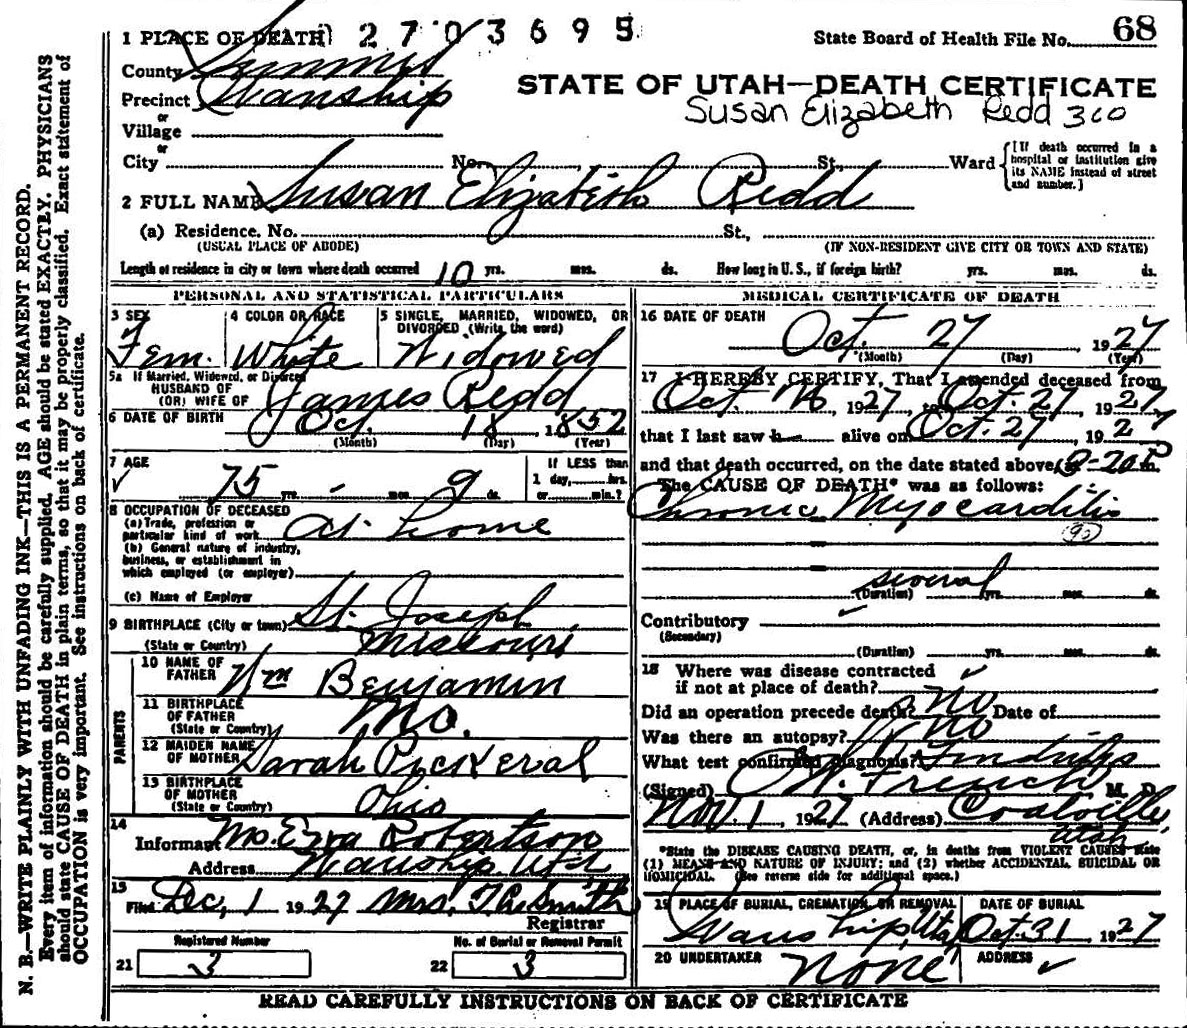 1 PLACE OF DEATH 2703695
State Board of Health File No. 68
County Summit
STATE OF UTAH—DEATH CERTIFICATE
Precinct Wanship
Susan Elizabeth Redd 360
or
Village
or
City No. St. Ward {[If death occurred in a hospital or institution give its NAME instead of street and number.]
2 FULL NAME Susan Elizabeth Redd
(a) Residence. No. St.,
(USUAL PLACE OF ABODE) (IF NON-RESIDENT GIVE CITY OR TOWN AND STATE)
Length of residence in city or town where death occurred 10 yrs. mos. ds. How long in U. S., if foreign birth? yrs. mos. ds.
PERSONAL AND STATISTICAL PARTICULARS
3 SEX 4 COLOR OR RACE 5 SINGLE, MARRIED, WIDOWED, OR
DIVORCED (Write the word)
Fem. White Widowed
5a If Married, Widowed, or Divorced
HUSBAND OF
(OR) WIFE OF James Redd
6 DATE OF BIRTH Oct. 18 1852
(Month) (Day) (Year)
7 AGE If LESS than
75 yrs. - mos. 9 ds. 1 day, hrs.
or min.?
8 OCCUPATION OF DECEASED
(a) Trade, profession or
particular kind of work at home
(b) General nature of industry,
business, or establishment in
which employed (or employer)
(c) Name of Employer
9 BIRTHPLACE (City or town) St. Joseph
(State or Country) Missouri
PARENTS
10 NAME OF
FATHER Wm Benjamin
11 BIRTHPLACE
OF FATHER
(State or Country) Mo.
12 MAIDEN NAME
OF MOTHER Sarah Pickeral
13 BIRTHPLACE
OF MOTHER
(State or Country) Ohio
14
Informant Ezra Robertson
Address Wanship Utah
15
Filed Dec, 1 1927 Mrs. Smith
Registrar
Registered Number No. of Burial or Removal Permit
21 3 22 3
MEDICAL CERTIFICATE OF DEATH
16 DATE OF DEATH
Oct. 27, 1927
(Month) (Day) (Year)
17 I HEREBY CERTIFY, That I attended deceased from
Oct. 1927, to Oct. 27, 1927
that I last saw h alive on Oct. 27, 1927
and that death occurred, on the date stated above, 8-20 P m.
The CAUSE OF DEATH* was as follows:
Chronic Myocarditis
90
several
(Duration) yrs. mos. ds.
Contributory
(Secondary)
(Duration) yrs. mos. ds.
18 Where was disease contracted
if not at place of death?
Did an operation precede death? No Date of
Was there an autopsy? No
What test confirmed diagnosis? Findings
(Signed) French M. D.
Nov. 1, 1927 (Address) Coalville,
Utah
*State the DISEASE CAUSING DEATH, or, in deaths from VIOLENT CAUSES state
(1) MEANS AND NATURE OF INJURY; and (2) whether ACCIDENTAL, SUICIDAL OR
HOMICIDAL. (See reverse side for additional space.)
19 PLACE OF BURIAL, CREMATION, OR REMOVAL DATE OF BURIAL
Wanship, Utah Oct. 31 1927
20 UNDERTAKER none ADDRESS
READ CAREFULLY INSTRUCTIONS ON BACK OF CERTIFICATE
N. B.—WRITE PLAINLY WITH UNFADING INK—THIS IS A PERMANENT RECORD.
Every item of information should be carefully supplied. AGE should be stated EXACTLY. PHYSICIANS
should state CAUSE OF DEATH in plain terms, so that it may be properly classified. Exact statement of
OCCUPATION is very important. See instructions on back of certificate.